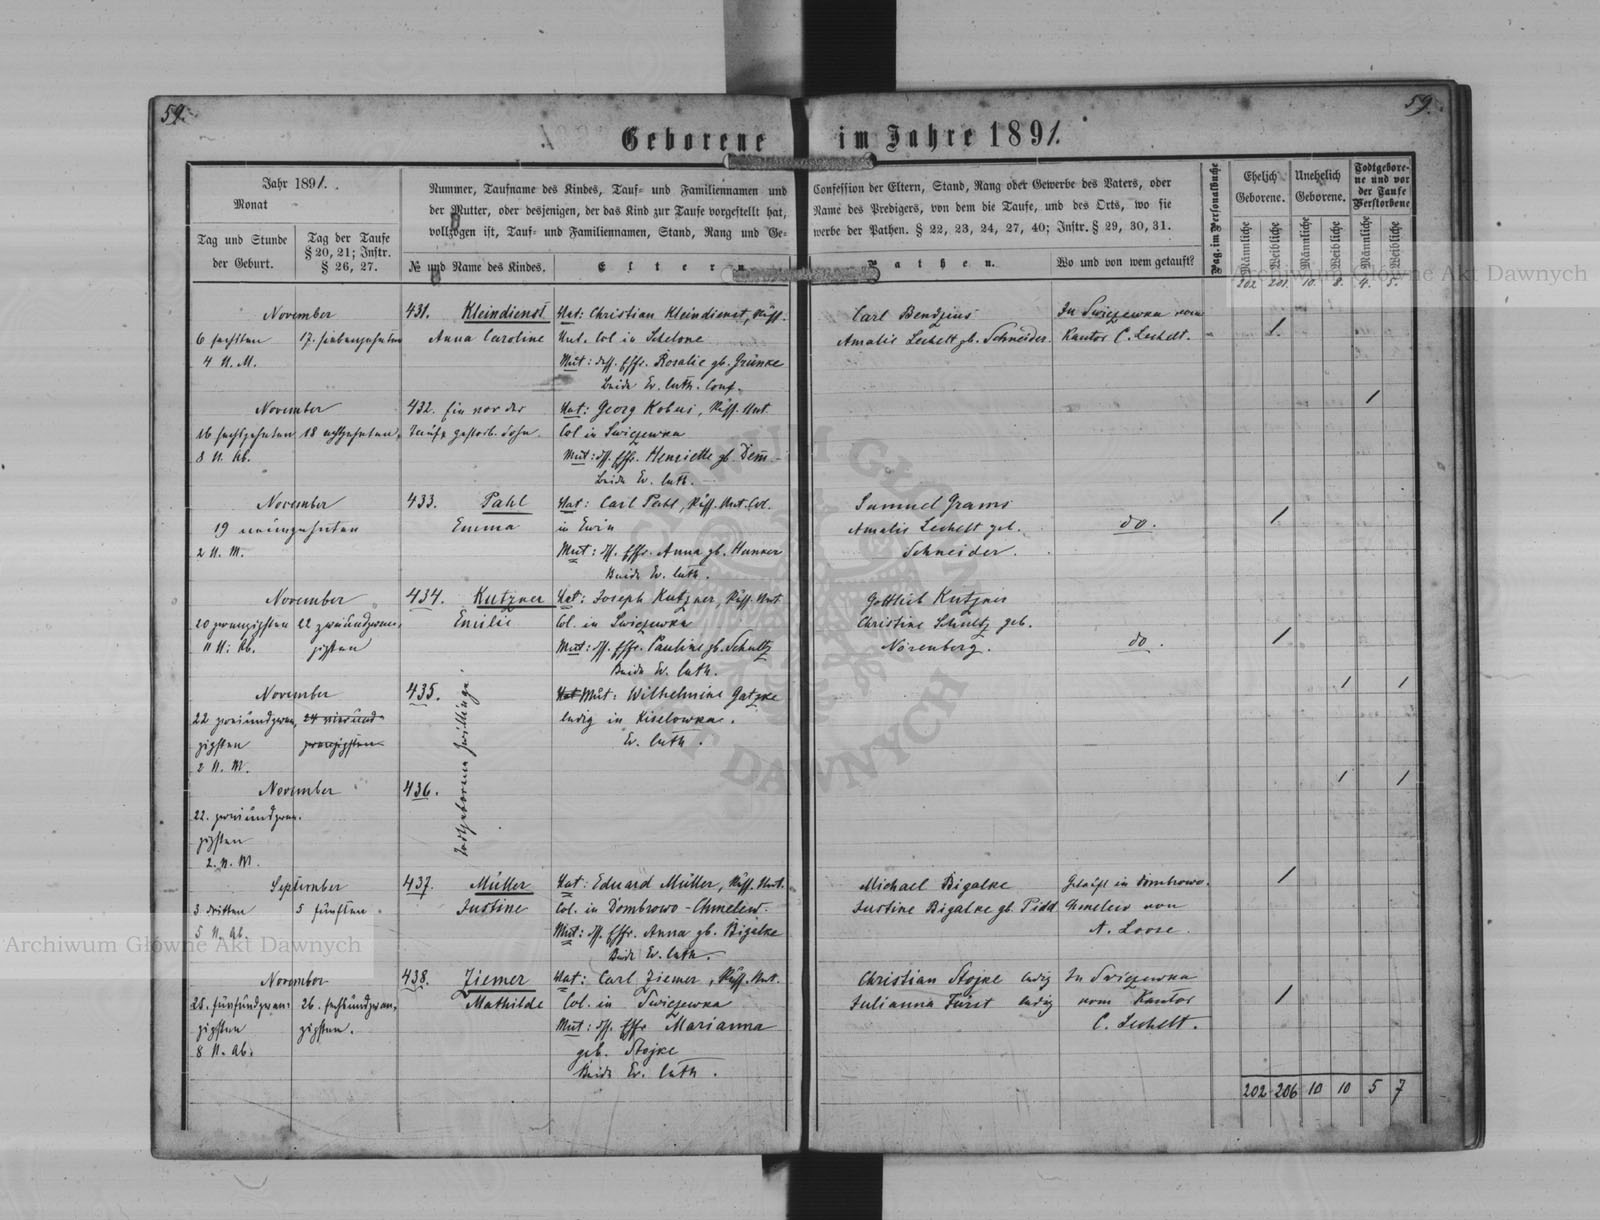 59.
59.
Geborene im Jahre 1891.
Jahr 1891.
Monat
Tag und Stunde
der Geburt.
Tag der Taufe
§ 20, 21; Instr.
§ 26, 27.
Nummer, Taufname des Kindes, Tauf- und Familiennamen und
der Mutter, oder desjenigen, der das Kind zur Taufe vorgestellt hat,
vollzogen ist, Tauf- und Familiennamen, Stand, Rang und Ge-
№ und Name des Kindes.
Eltern
Confession der Eltern, Stand, Rang oder Gewerbe des Vaters, oder
Name des Predigers, von dem die Taufe, und des Orts, wo sie
werbe der Pathen. § 22, 23, 24, 27, 40; Instr. § 29, 30, 31.
Pathen.
Wo und von wem getauft?
Pag. im Personalbuche
Ehelich
Geborene.
Unehelich
Geborene.
Todtgebore-
ne und vor
der Taufe
Verstorbene
Männliche
Weibliche
Männliche
Weibliche
Männliche
Weibliche
202 201. 10. 8. 4. 5.
November
6 sechsten
4 U. M.
17. siebenzehnten
431. Kleindienst
Anna Caroline
Vat: Christian Kleindienst, Russ.
Unt. Col in
Mut: dess. Ehfr. Rosalie gb. Grünke
Beide Ev. luth. Conf.
Carl Bendzius
Amalie Lechelt gb. Schneider.
In Swiczewka vom
Kantor C. Lechelt.
1.
November
16 sechszehnten
8 U. Ab.
18 achtzehnten.
432. Ein vor der
Taufe gestorb. Sohn.
Vat: Georg Kobus, Russ. Unt.
Col in Swiczewka
Mut: dss. Ehfr. Henriette gb. Dem
Beide Ev. luth.
1
November
19 neunzehnten
2 U. M.
433. Pahl
Emma
Vat: Carl Pahl, Russ. Unt. Col.
in Ewin
Mut: dss. Ehfr. Anna gb. Hunker
Beide Ev. luth.
Samuel Grams
Amalie Lechelt geb.
Schneider.
do.
1.
November
20 zwanzigsten
11 U. Ab.
22 zweiundzwan-
zigsten
434. Kutzner
Emilie
Vat: Joseph Kutzner, Russ. Unt
Col. in Swiczewka
Mut: dss. Ehfr. Pauline gb. Schultz
Beide Ev. luth.
Gottlieb Kutzner
Christine Schultz geb.
Nörenberg.
do.
1
November
22 zweiundzwan-
zigsten
2 U. M.
24 vierund-
zwanzigsten
435.
todtgeborene Zwillinge.
Vat Mut: Wilhelmine Gatzke
ledig in Kiselowka.
Ev. luth.
1 1
November
22. zweiundzwan-
zigsten
2. U. M.
436.
1 1
September
3 dritten
5 U. Ab.
5 fünften
437. Müller
Justine
Vat: Eduard Müller, Russ. Unt.
Col. in Dombrowo-Chmelew.
Mut: dss. Ehfr. Anna gb. Bigalke
Beide Ev. luth.
Michael Bigalke
Justine Bigalke gb. Pidd
Getauft in Dombrowo-
Chmelew von
A. Loose.
1
November
25. fünfundzwan-
zigsten
8 U. Ab.
26. sechsundzwan-
zigsten.
438. Ziemer
Mathilde
Vat: Carl Ziemer, Russ. Unt.
Col. in Swiczewka
Mut: dss. Ehfr Marianna
geb. Stojke
Beide Ev. luth.
Christian Stojke ledig
Julianna Fürst ledig
In Swiczewka
vom Kantor
C. Lechelt.
1
202 206 10 10 5 7
Archiwum Główne Akt Dawnych
Archiwum Główne Akt Dawnych